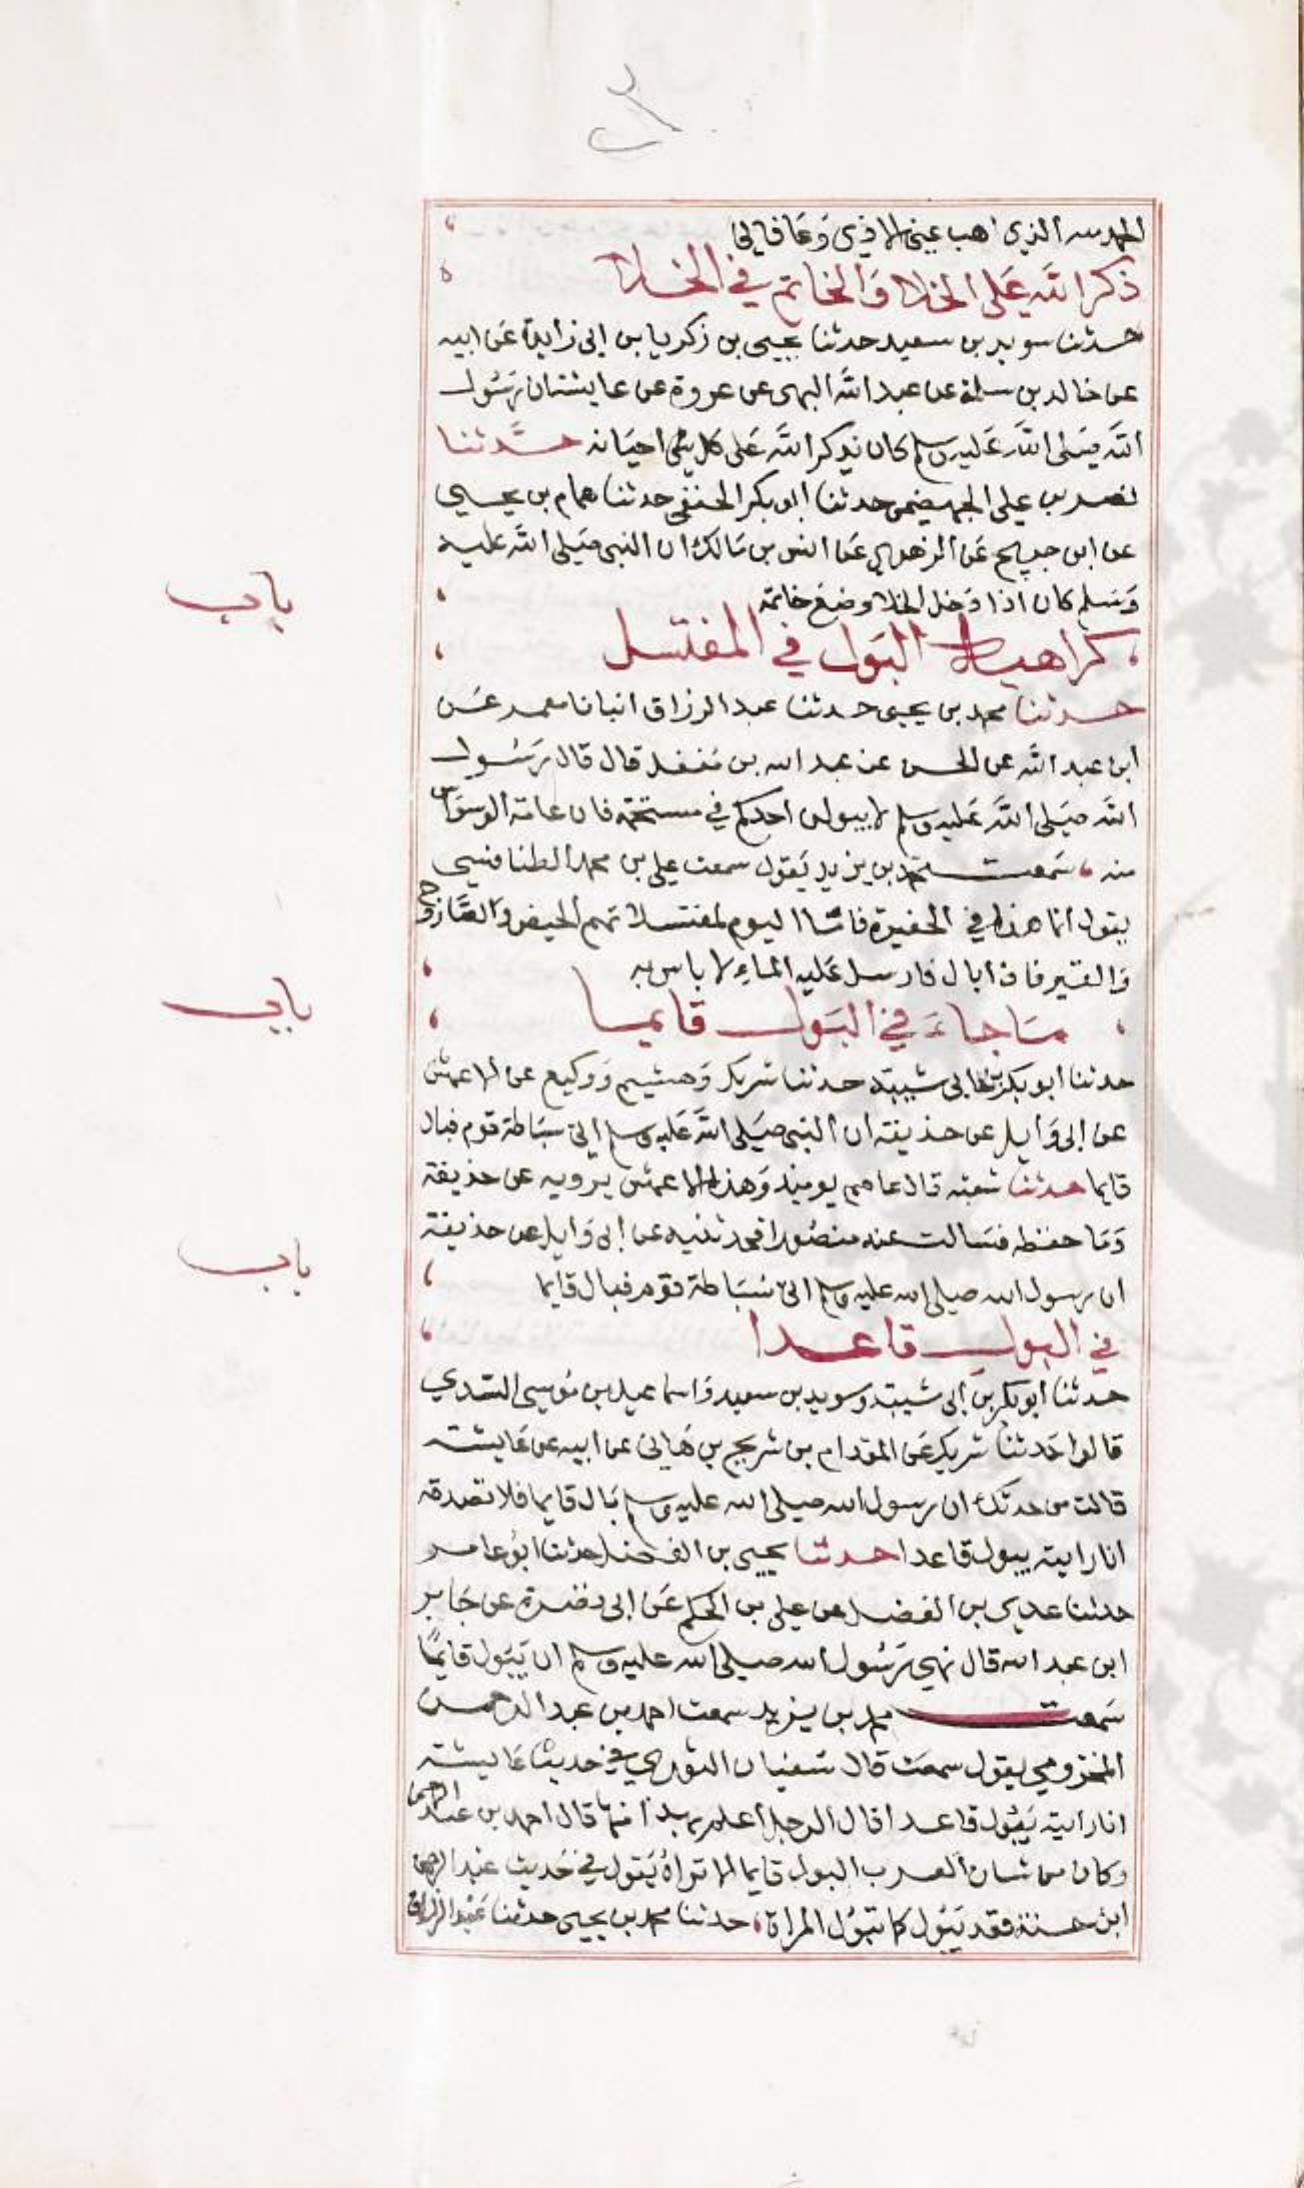 الحمد لله الذي اهب عني الاذي وَعَافاني
ذكر الله عَلى الخلا وَالخاتم في الخلا
حدثنا سويد بن سعيد حدثنا يحيى بن زكريا بن ابي زايدة عَن ابيه
عن خالد بن سلمة عن عبد الله البهى عن عروة عن عايشة ان رَسُول
الله صَلى الله عَليه وسلم كان يذكر الله عَلى كل احيَانه حدَّثنا
نصر بن علي الجهضمى حدثنا ابو بكر الحنفى حدثنا همام بن يحيي
عن ابن جريج عَن الزهري عَن انس بن مَالك ان النبي صَلى الله عليه
وَسَلم كان اذا دَخل الخلا وضع خاتمه
باب
كراهية البَول في المغتسل
حدثنا محمد بن يحيى حدثنا عبد الرزاق انبانا معمر عَن
ابن عبد الله عن الحسن عن عبد الله بن مُغفل قال قال رَسُول
الله صَلى الله عَليه وسلم لا يبولن احدكم في مستحمه فان عامة الوسوَاس
منه سَمعت محمد بن يزيد يَقول سمعت علي بن محمد الطنافسي
يقول انما هذا في الحفيرة فاما اليوم لمغتسلاتهم الحيض وَالصَّاروج
وَالقير فاذا بال فارسل عَليه الماء لا باس به
باب
مَا جاءَ في البَول قايما
حدثنا ابو بكر بن ابي شيبة حدثنا شريك وَهشيم وَوكيع عن الاعمش
عن ابى وَايل عن حذيفة ان النبي صَلى الله عَليه وسلم اتى سُبَاطة قوم فبال
قايما حدثنا شعبة قال عاصم يوميذ وَهذا الاعمش يرويه عن حذيفة
وَمَا حفظه فسَالت عنه منصُورا فحدثنيه عن ابي وَايل عن حذيفة
ان رسول الله صلى الله عليه وسلم اتى سُبَاطة قوم فبال قايما
باب
في البول قاعدا
حدثنا ابو بكر بن ابي شيبة وسويد بن سعيد وَاسماعيل بن مُوسى السّدي
قالوا حَدثنا شريك عَن المقدام بن شريح بن هَاني عن ابيه عن عَايشة
قالت من حدثك ان رسول الله صلى الله عليه وسلم بَال قايما فلا تصدقه
انا رايته يبول قاعدا حدثنا يحيى بن الفضل حدثنا ابُو عامر
حدثنا عدي بن الفضل عن علي بن الحكم عَن ابي نضرة عن جَابر
ابن عبد الله قال نهى رَسُول الله صلى الله عليه وسلم ان يَبَول قايمًا
سَمعت محمد بن يزيد سمعت احمد بن عبد الرحمن
المخزومي يقول سمعت قال سُفيان الثوري في حَديث عَايشة
انا رايته يَبُول قاعدا قال الرجل اعلم بهذا منها قال احمد بن عبد الرحمن
وكان من شان العرب البول قايما الا تراهُ يَقول في حَديث عَبد الرحمن
ابن حسنة فقد يَبُول كما تبوُل المراة حدثنا محمد بن يحيى حدثنا عَبْد الرزاق